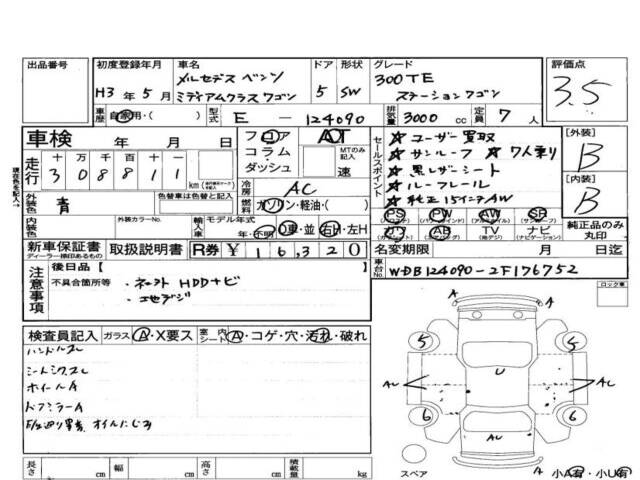 出品番号 初度登録年月 車名 ドア 形状 グレード 評価点
H3年5月 メルセデスベンツ ミディアムクラスワゴン 5 SW 300TE ステーションワゴン 3.5
車歴 自家用・( ) 型式 E-124090 排気量 3000 cc 定員 7 人
車検 年 月 日 フロア コラム・ダッシュ AOT MTのみ記入 速
現在色を記入→
走行 十 万 千 百 十 一
3 0 8 8 1 1 km
冷房 AC
セールスポイント
★ユーザー買取
★サンルーフ ★7人乗り
★黒レザーシート
★ルーフレール
★純正15インチAW
[外装] B
[内装] B
外装色 青 色替車は色替と記入 燃料 ガソリン・軽油・( )
内装色 外装カラーNo. 輸入車 モデル年式 年・不明 D車・並 右H・左H
PS (パワステ) PW (パワーウィンドウ) AW (アルミホイル) SR (サンルーフ)
カワ AB TV (地デジ) ナビ (ナビゲーション)
純正品のみ丸印
新車保証書 ディーラー様印あるもの 取扱説明書 R券 ¥16,320
名変期限 月 日迄
注意事項 後日品【 】
不具合箇所等 ・ネット HDDナビ
・エセデジ
車台No. WDB124090-2F176752
ロック車
検査員記入 ガラス A・X要ス 室内シート A・コゲ・穴・汚れ・破れ
ハンドルスレ
シートシワスレ
ホイールA
ドアミラーA
オイルにじみ
A A
5 5
U
AU AU
6 6
AU
A A
スペア 小A有・小U有
長さ cm 幅 cm 高さ cm 積載量 kg